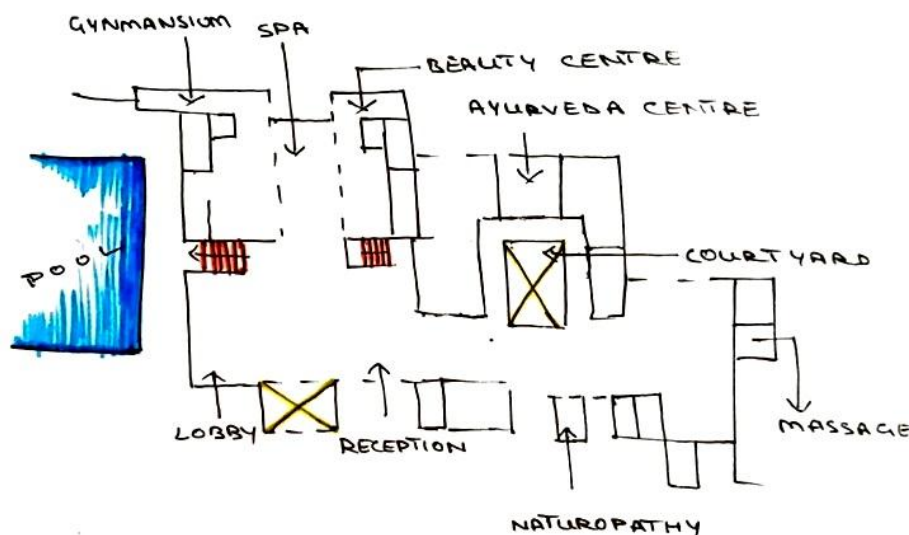 GYNMANSIUM
SPA
BEAUTY CENTRE
AYURVEDA CENTRE
POOL
COURTYARD
LOBBY
RECEPTION
MASSAGE
NATUROPATHY